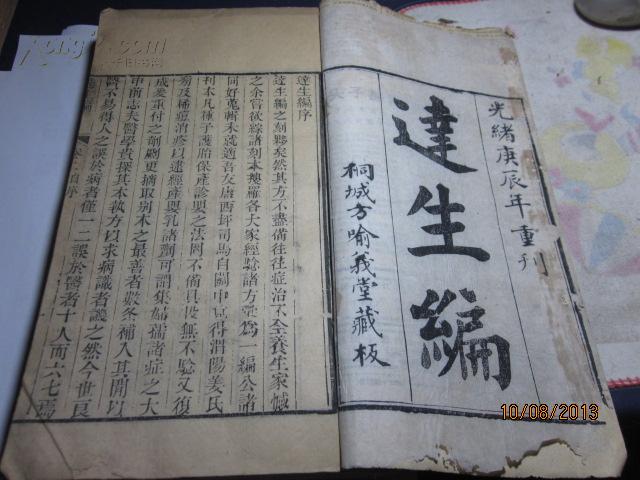 光緒庚辰年重刊
達生編
桐城方喻義堂藏板
達生編序
達生編之刻夥矣然其方不盡備往往症治不全養生家憾
之余嘗欲綜諸刻本類

諸各大家經驗諸方彙為一編公諸
同好蒐輯未就適吾友唐西坪司馬自關中寄得渭陽姜氏
刊本凡種子護胎保產診嬰之法罔不備具投無不驗又復
芻及稀痘消疹以逮經產與乳諸劑可謂集婦孺諸症之大
成爰重付之剞劂更摘取別本之最善者數条補入其間以
申前志夫醫學貴探其本執方以求病識者譏之然今世良
醫不易得人之誤於病者僅一二誤於醫者十人而六七焉
10/08/2013